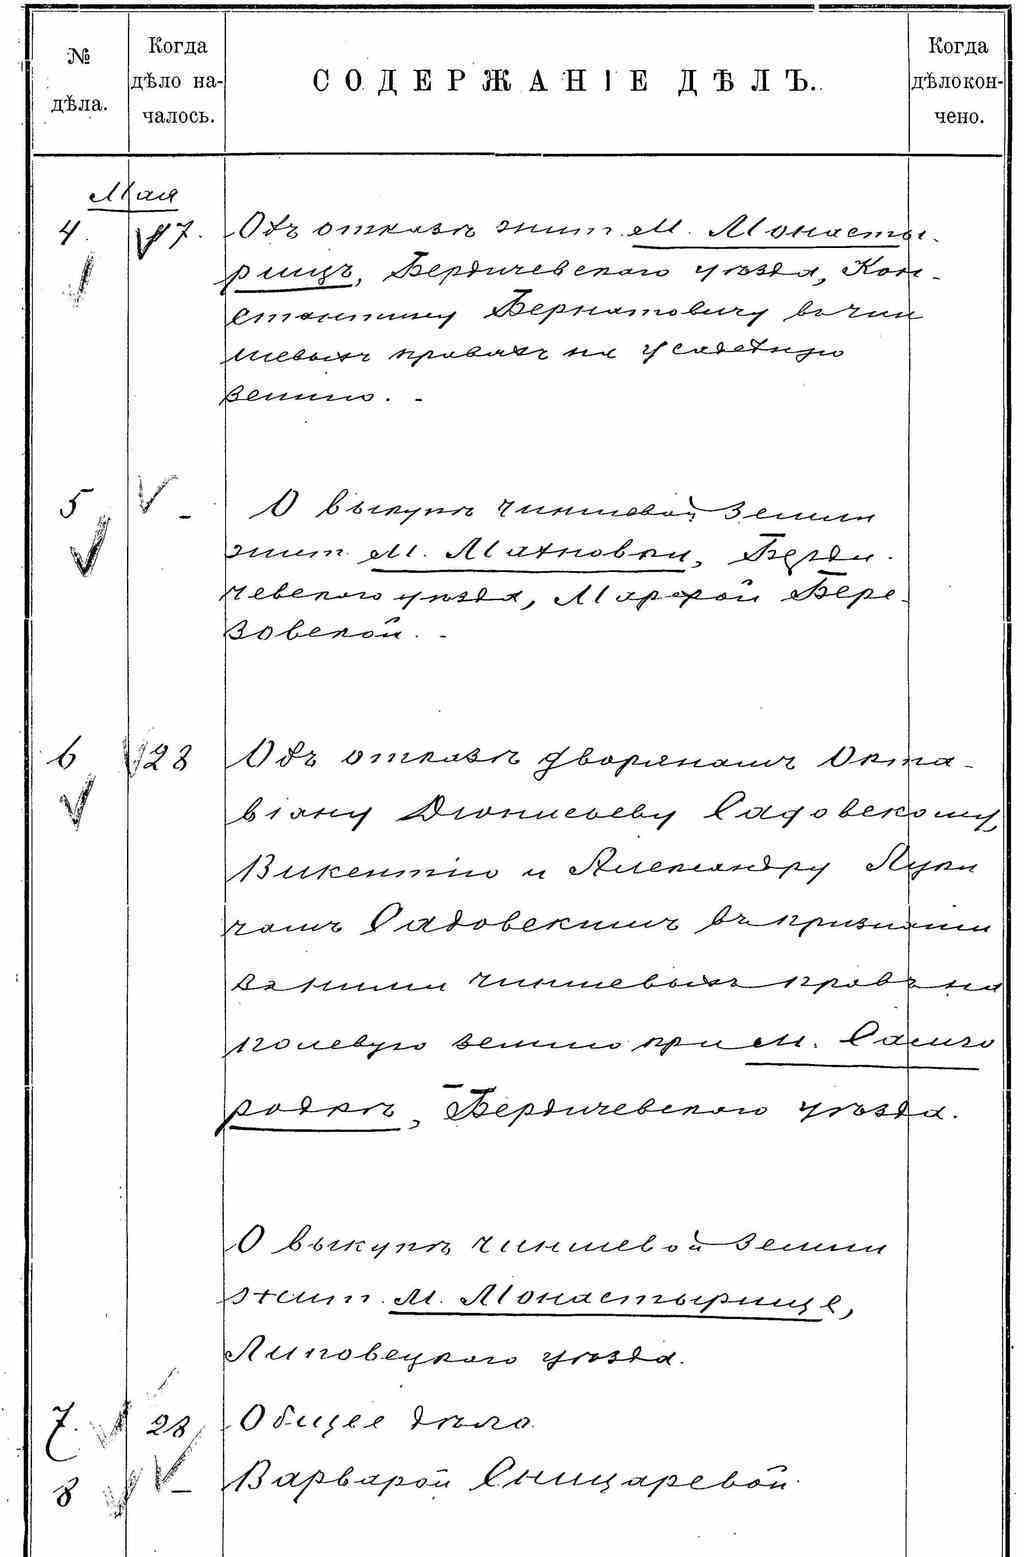 № дѣла.
Когда дѣло на-
чалось.
СОДЕРЖАНІЕ ДѢЛЪ.
Когда дѣло кон-
чено.
Мая
4 17. Объ отказѣ жит. м. Монасты-
рищъ, Бердичевскаго уѣзда, Кон-
стантину Бернатовичу въ чин
шевыхъ правахъ на усадебную
землю. -
5 - О выкупѣ чиншевой земли
жит. м. Махновки, Берди-
чевскаго уѣзда, Марфой Бере-
зовской. -
6 28 Объ отказѣ дворянамъ Окта-
віану Діонисьеву Садовскому,
Викентію и Александру Луки
чамъ Садовскимъ въ признаніи
за ними чиншевыхъ правъ на
полевую землю при м. Самго
родкѣ, Бердичевскаго уѣзда.
О выкупѣ чиншевой земли
жит. м. Монастырище,
Липовецкаго уѣзда.
7. 28 Общее дѣло.
8 - Варварой Сницаревой.